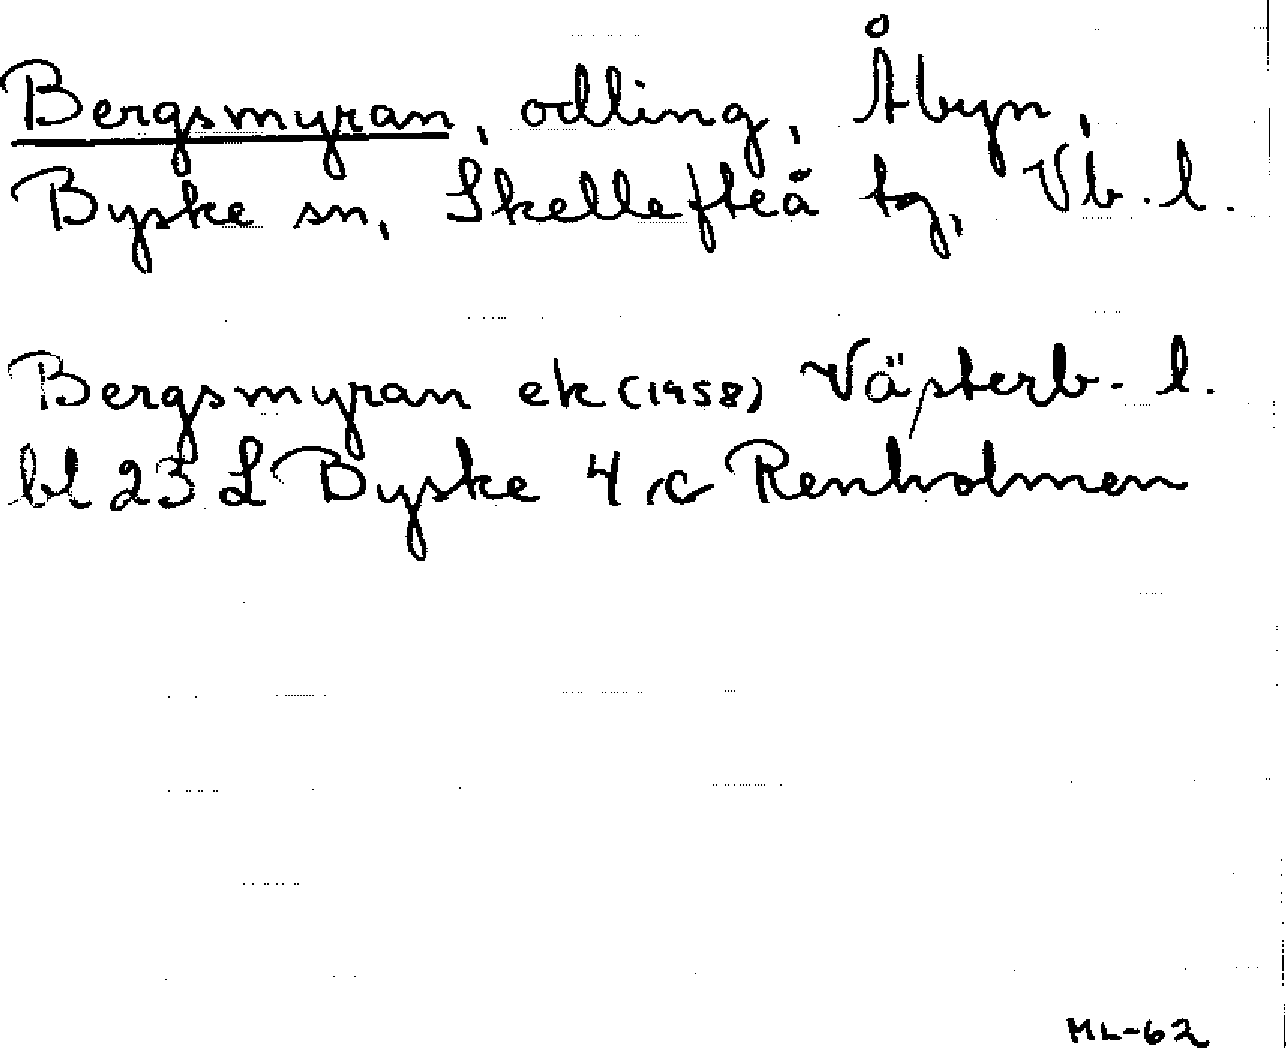 Bergsmyran, odling, Åbyn,
Byske sn, Skellefteå tg, Vb. l.
Bergsmyran ek (1958) Västerb. l.
bl 23 L Byske 4 c Renholmen
ML-62